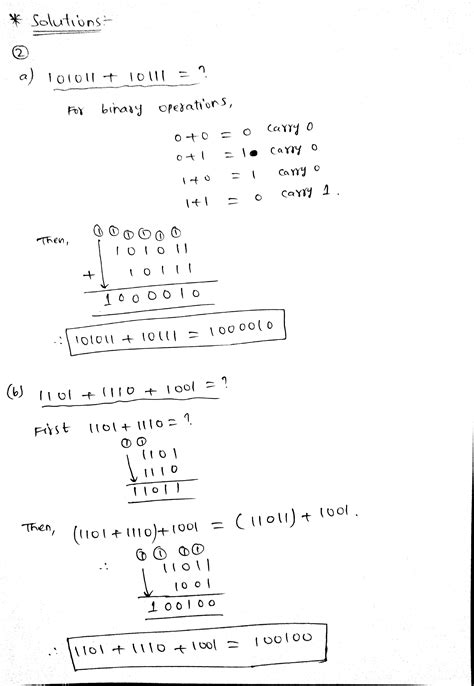 * Solutions:-
②
a) 101011 + 10111 = ?
For binary operations,
0+0 = 0 carry 0
0+1 = 1 carry 0
1+0 = 1 carry 0
1+1 = 0 carry 1.
Then,
① ① ① ① ① ①
101011
+ 10111
1000010
∴ 101011 + 10111 = 1000010
(b) 1101 + 1110 + 1001 = ?
First 1101 + 1110 = ?
① ①
1101
1110
11011
Then, (1101 + 1110) + 1001 = (11011) + 1001.
① ① ① ①
∴ 11011
1001
100100
∴ 1101 + 1110 + 1001 = 100100